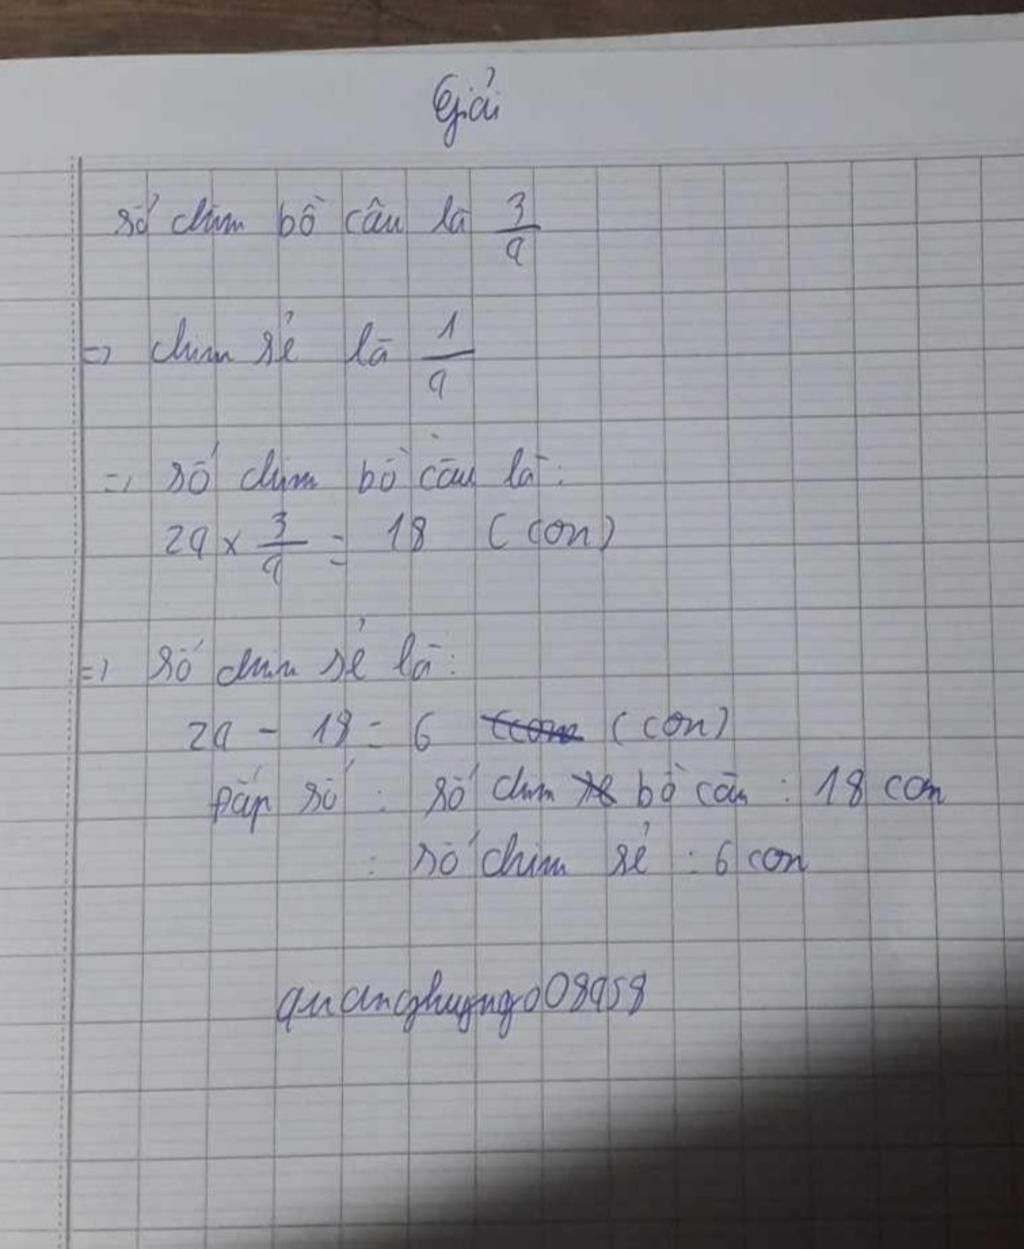 Giải
số chim bồ câu là 3/4
=> chim sẻ là 1/4
=> số chim bồ câu là:
24 x 3/4 = 18 (con)
=> số chim sẻ là:
24 - 18 = 6 (con)
Đáp số : số chim bồ câu : 18 con
: số chim sẻ : 6 con
quanghuyngo08458